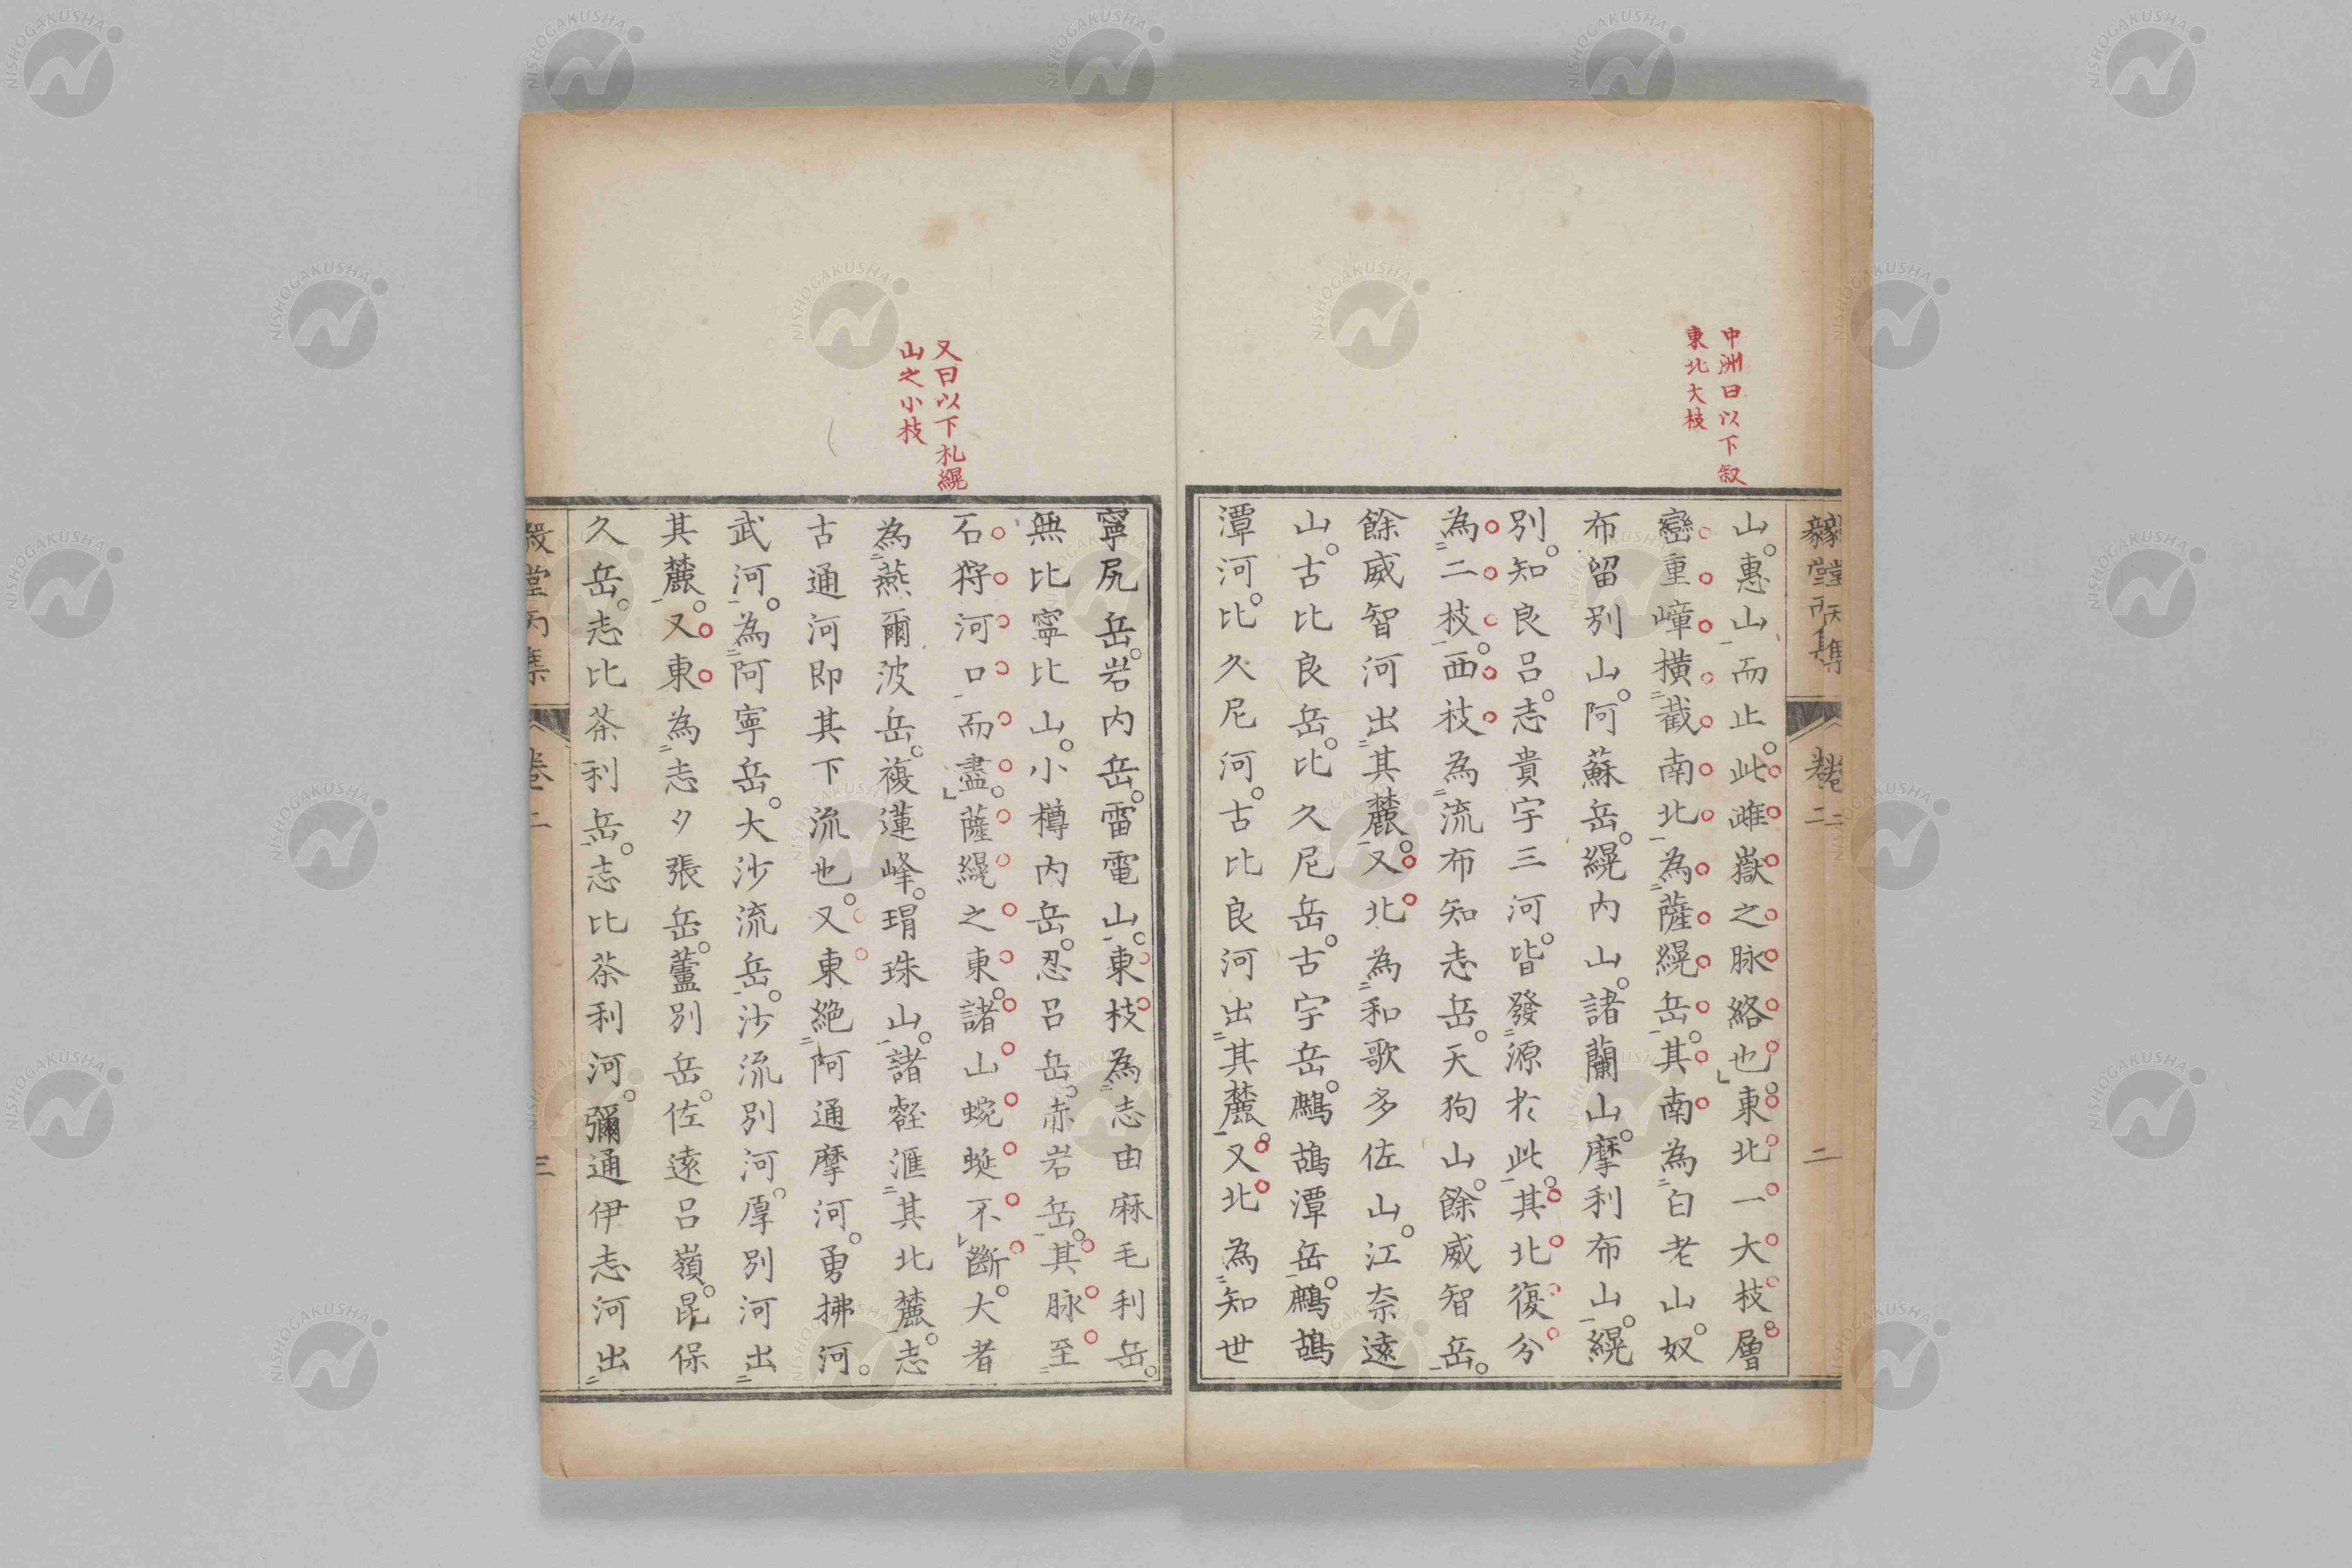 中洲曰以下叙
東北大枝
毅堂丙集 卷二 二
山惠山而止此雌嶽之脉絡也東北一大枝層
巒重嶂橫截南北為薩縨岳其南為白老山奴
布留別山阿蘇岳縨内山諸蘭山摩利布山縨
別知良呂志貴宇三河皆發源於此其北復分
為二枝西枝為流布知志岳天狗山餘威智岳
餘威智河出其麓又北為和歌多佐山江奈遠
山古比良岳比久尼岳古宇岳鷓鴣潭岳鷓鴣
潭河比久尼河古比良河出其麓又北為知世
又曰以下札縨
山之小枝
寧尻岳岩内岳雷電山東枝為志由麻毛利岳
無比寧比山小樽内岳忍呂岳赤岩岳其脉至
石狩河口而盡薩縨之東諸山蜿蜒不斷大者
為燕爾波岳複蓮峰瑁珠山諸壑滙其北麓志
古通河即其下流也又東絶阿通摩河勇拂河
武河為阿寧岳大沙流岳沙流別河厚別河出
其麓又東為志夕張岳蘆別岳佐遠呂嶺昆保
久岳志比茶利岳志比茶利河彌通伊志河出
毅堂丙集 卷二 三
NISHOGAKUSHA